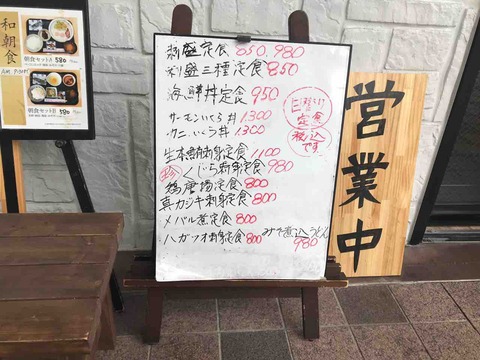 和朝食
朝食セットA 580
朝食セットB 580
刺盛定食 850. 980
刺盛三種定食 850
海鮮丼定食 950
サーモンいくら丼 1300
カニいくら丼 1300
生本鮪刺身定食 1100
珍 くじら刺身定食 980
鶏唐揚定食 800
真カジキ刺身定食 800
メバル煮定食 800
ハガツオ刺身定食 800
みそ煮込うどん
980
日替り
定食
税込
です
営業中